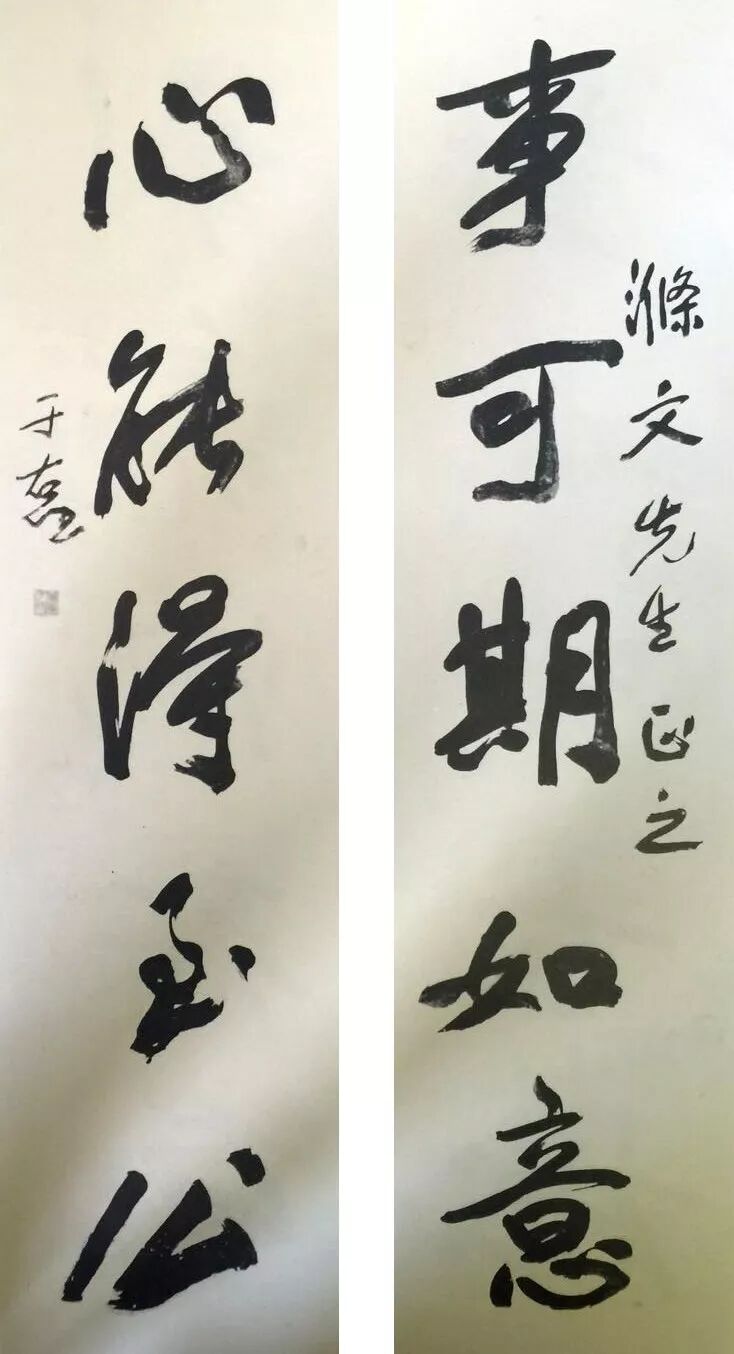 事可期如意
滌文先生正之
心能得至公
于右任